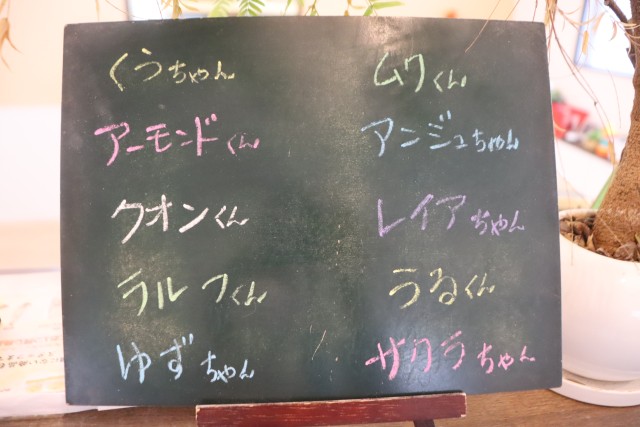 くうちゃん
アーモンドくん
クオンくん
ラルフくん
ゆずちゃん
ムクくん
アンジュちゃん
レイアちゃん
うるくん
サクラちゃん